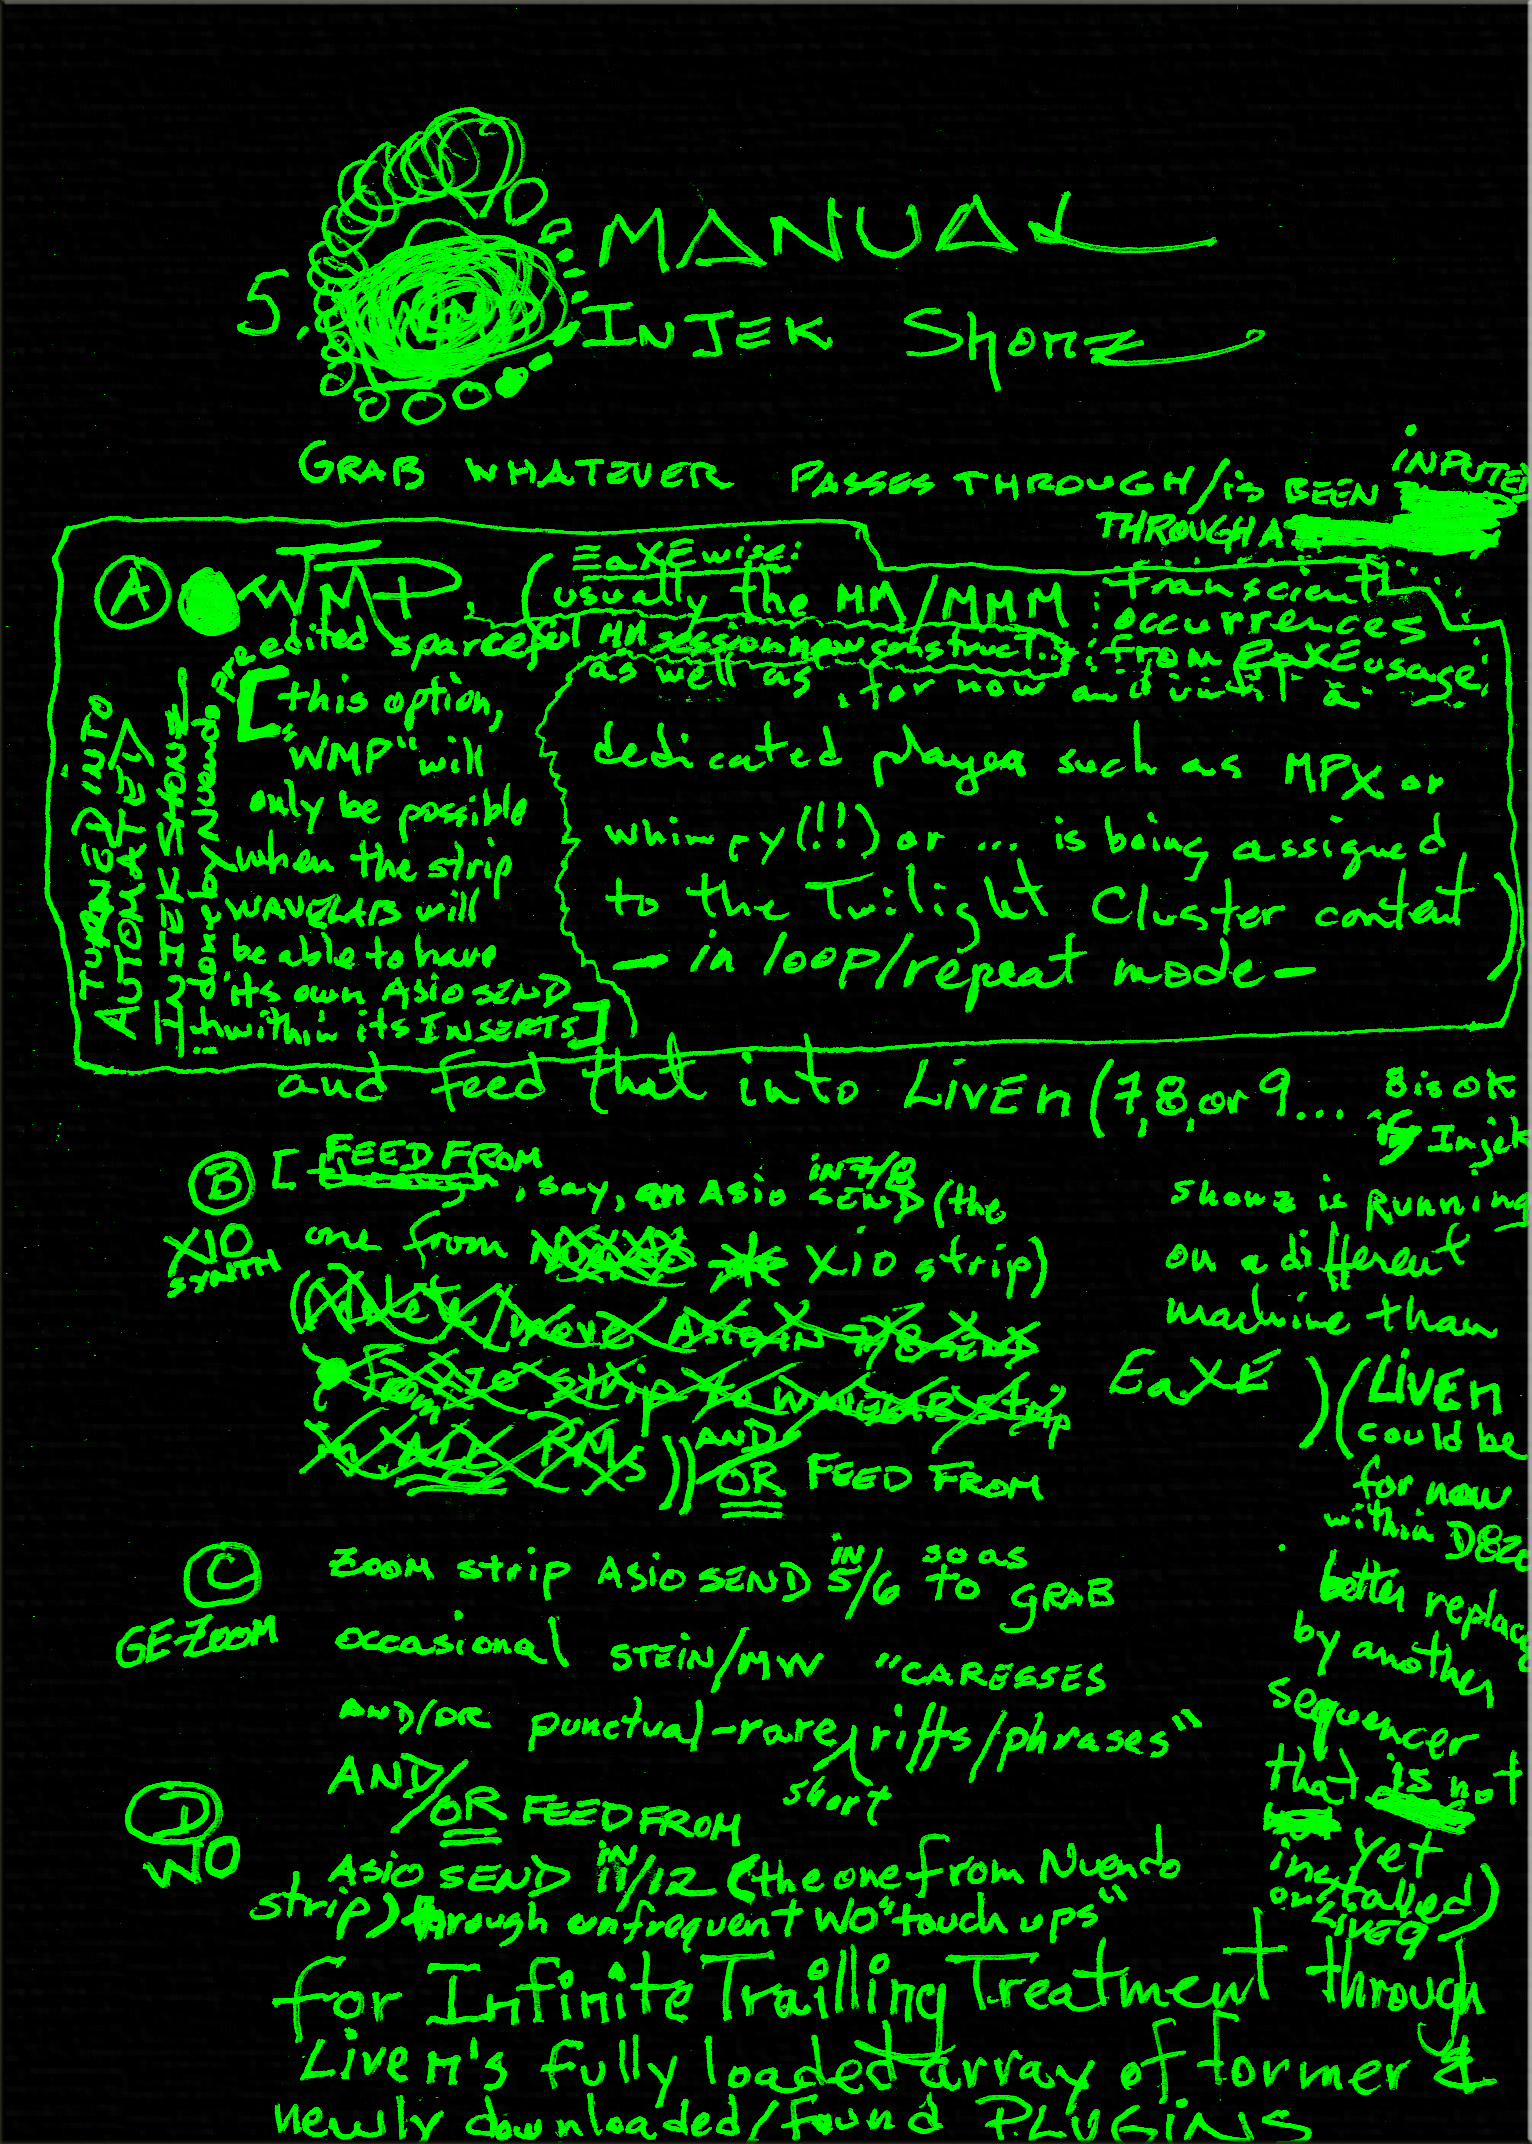 5. MANUAL
INJEK Shonz
GRAB WHATEVER PASSES THROUGH/is BEEN INPUTED
THROUGH A
A WMP. (EaXEwise:
usually the MM/MMM
transcient
occurrences
from EaXE usage:
pre edited sparceful MM session new construct
as well as, for now and until a
dedicated player such as MPX or
whimpy(!!) or ... is being assigned
to the Twilight Cluster content
— in loop/repeat mode — )
[this option,
"WMP" will
only be possible
when the strip
WAVELAB will
be able to have
its own ASIO SEND
within its INSERTS]
TURNED INTO
AUTOMATED
INJEK SHONZ
done by Nuendo
and feed that into LIVEn (7,8, or 9...
8 is OK
if Injek
Shonz is Running
on a different
machine than
EaXE ) (LIVEn
could be
for now
within D820
better replace
by another
sequencer
that is not
yet
installed
on LIVE9)
B [ FEED FROM, say, an ASIO in 7/8 SEND (the
XIO
SYNTH
one from XIO strip)
(delete/move ASIO IN 7/8 SEND
from XIO strip to WAVELAB strip
in ALL RMs )) AND/OR FEED FROM
C
GE-ZOOM
ZOOM strip ASIO SEND IN 5/6 so as to GRAB
occasional STEIN/MW "CARESSES
AND/OR punctual-rare short riffs/phrases"
AND/OR FEED FROM
D
WO
ASIO SEND IN 11/12 (the one from Nuendo
strip) through unfrequent WO "touch ups"
for Infinite Trailling Treatment through
Live n's fully loaded array of former &
newly downloaded/found PLUGINS